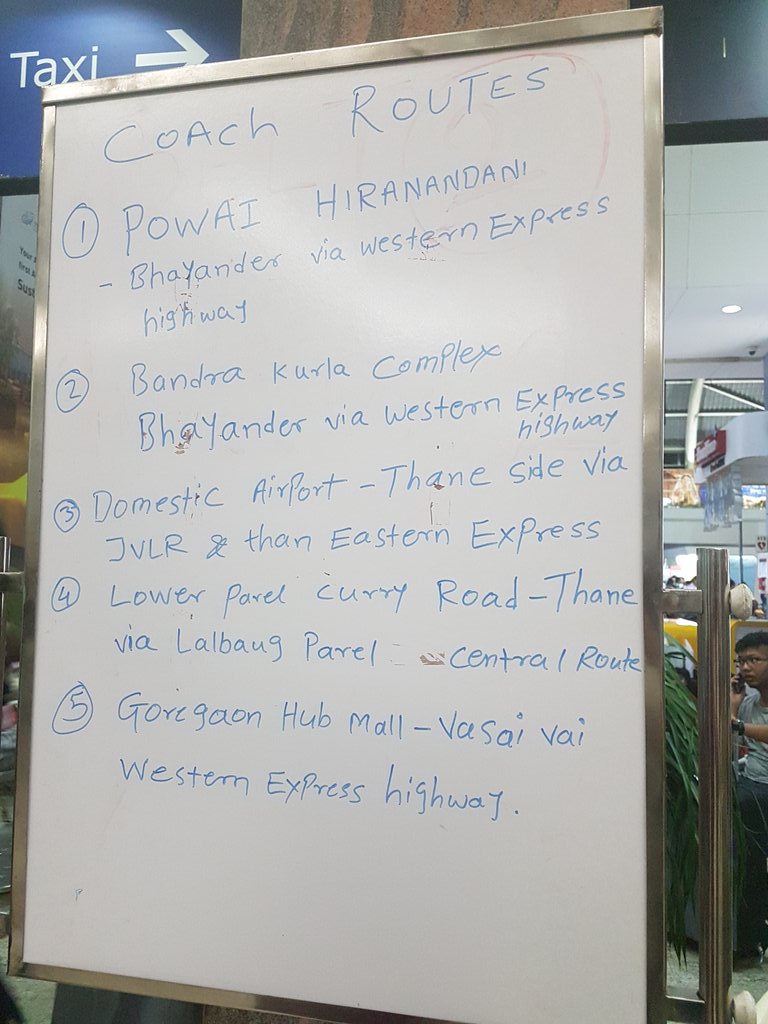 Taxi
COACH ROUTES
1 POWAI HIRANANDANI
- Bhayander via western Express
highway
2 Bandra Kurla Complex
Bhayander via western Express
highway
3 Domestic Airport - Thane side via
JVLR & than Eastern Express
4 Lower Parel Curry Road - Thane
via Lalbaug Parel - Central Route
5 Goregaon Hub Mall - Vasai vai
Western Express highway.